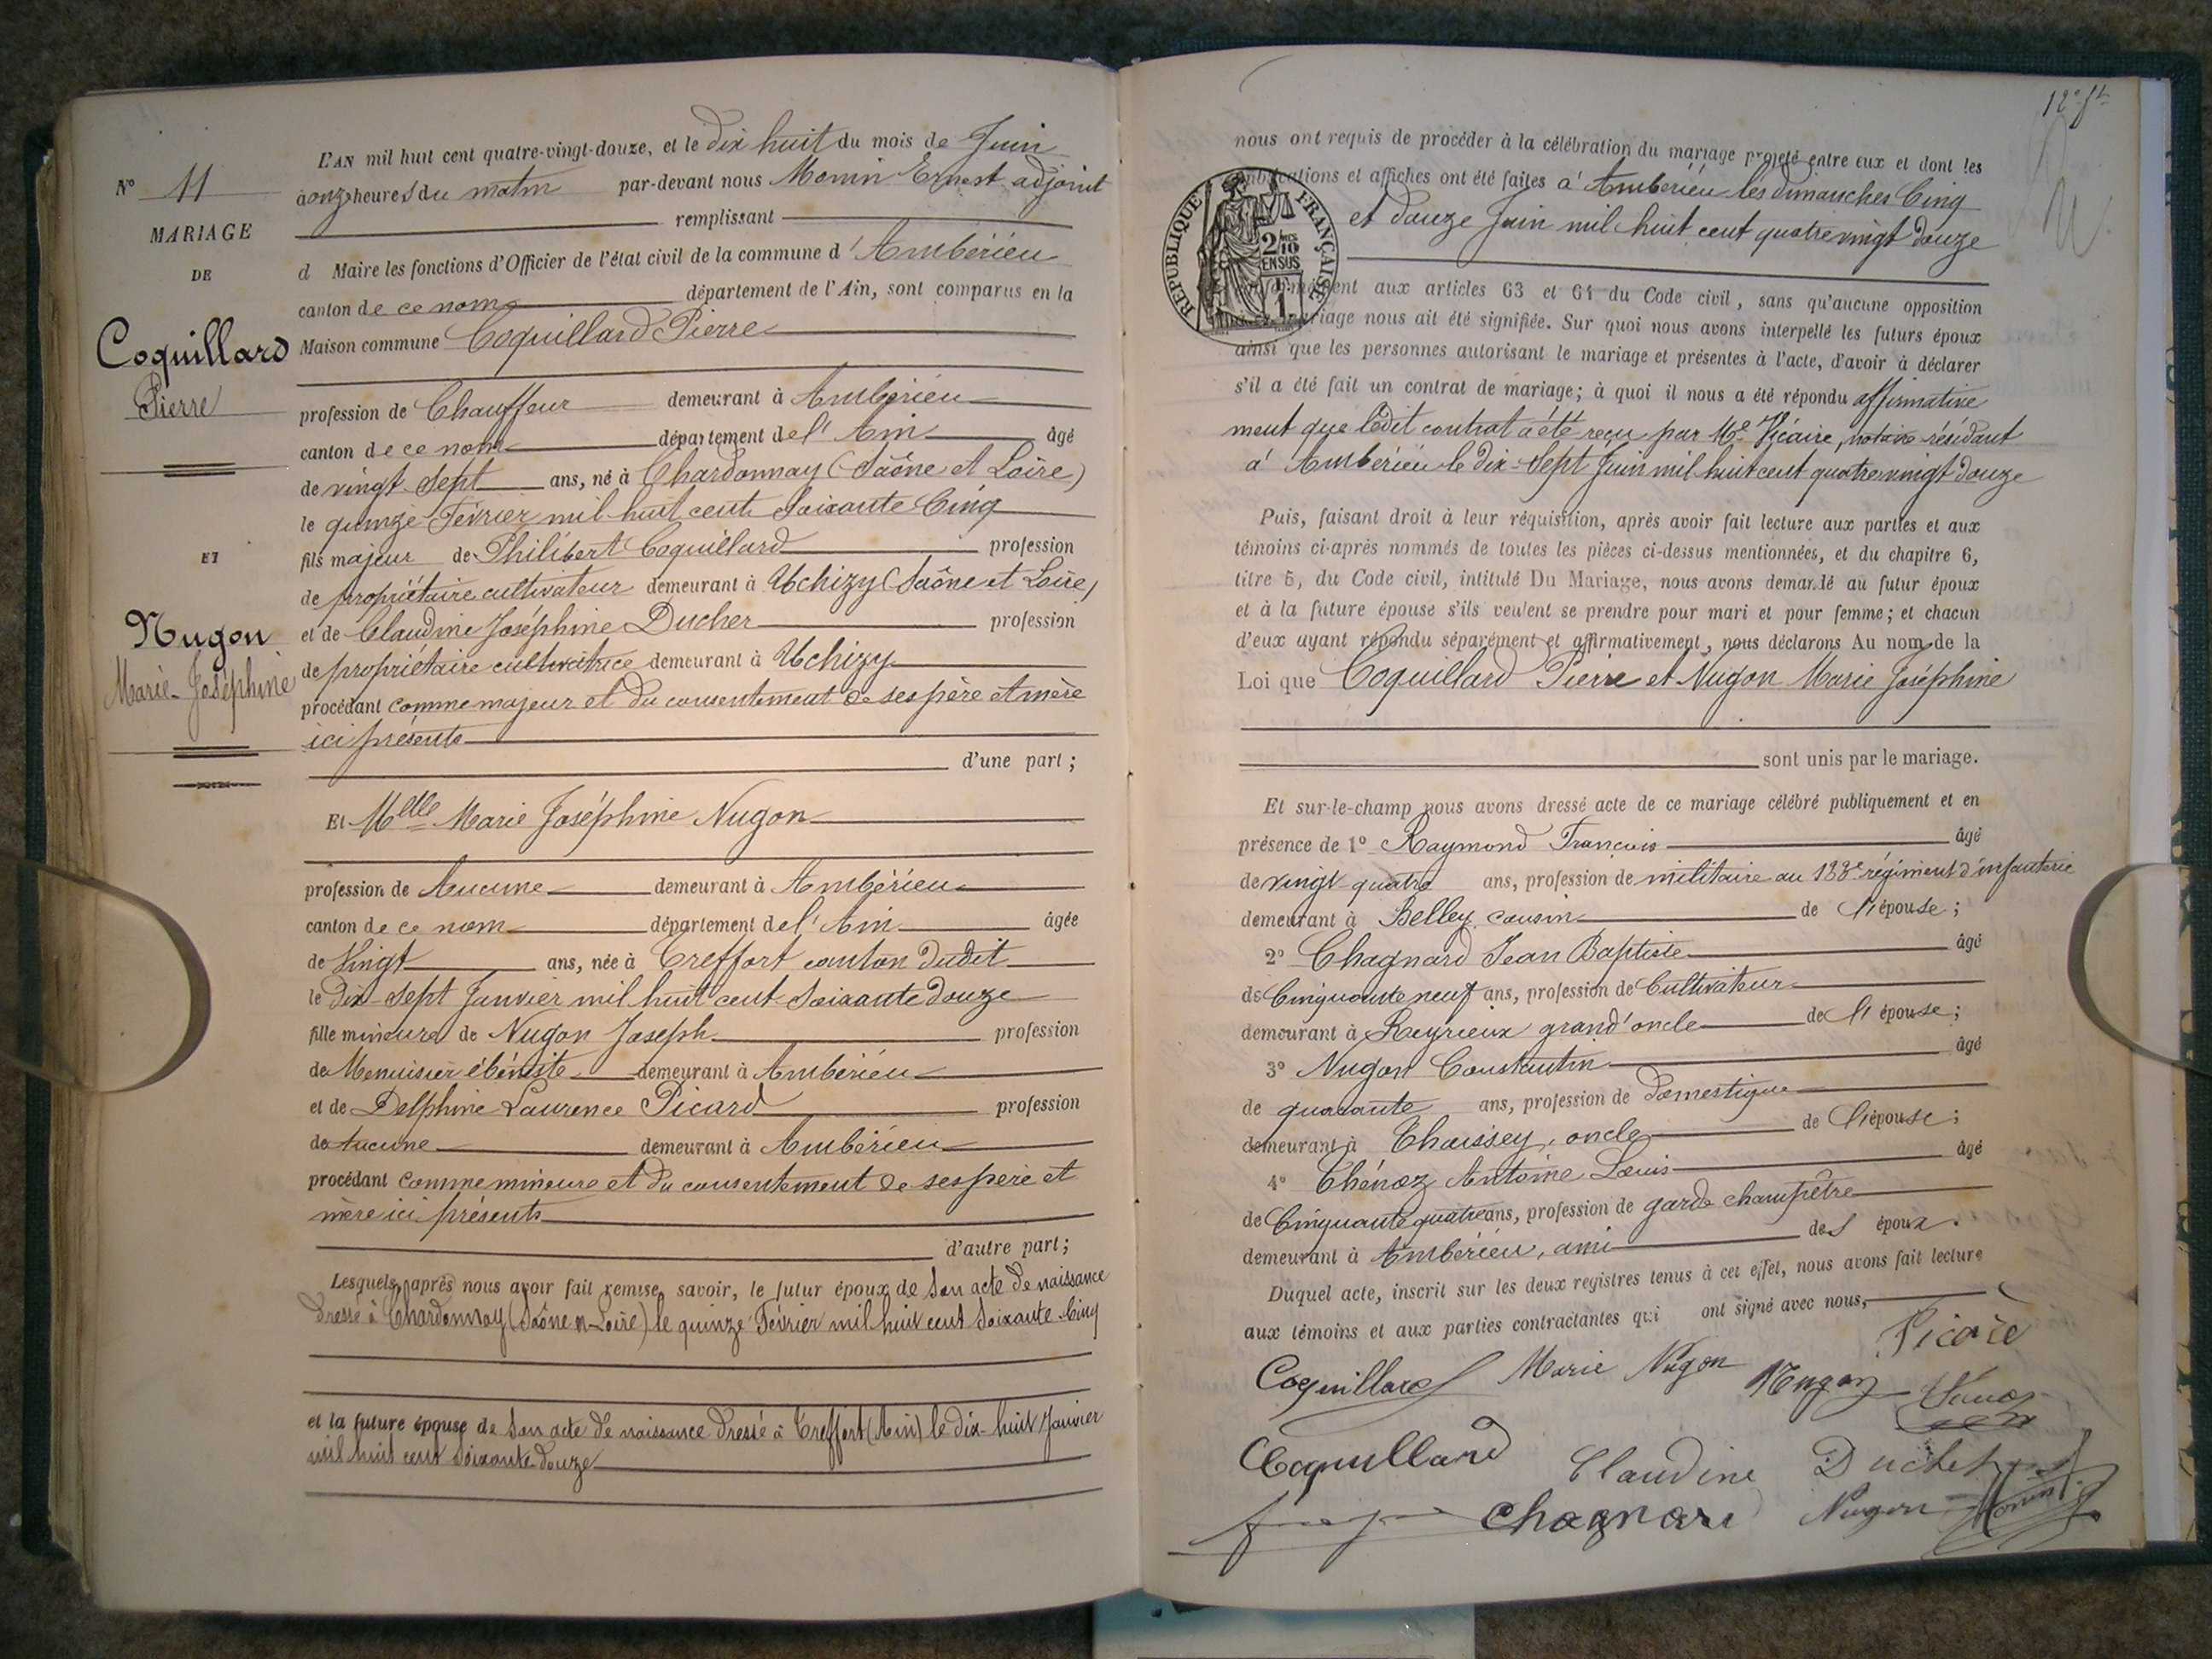 N° 11
MARIAGE
DE
Coquillard
Pierre
ET
Nugon
Marie-Joséphine
L'AN mil huit cent quatre-vingt-douze, et le dix huit du mois de Juin
à onze heures du matin par-devant nous Monin Ernest adjoint
remplissant
d Maire les fonctions d'Officier de l'état civil de la commune d'Ambérieu
canton de ce nom département de l'Ain, sont comparus en la
Maison commune Coquillard Pierre
profession de Chauffeur demeurant à Ambérieu
canton de ce nom département de l'Ain âgé
de vingt-sept ans, né à Chardonnay (Saône et Loire)
le quinze Février mil huit cent soixante Cinq
fils majeur de Philibert Coquillard profession
de propriétaire cultivateur demeurant à Uchizy (Saône et Loire)
et de Claudine Joséphine Ducher profession
de propriétaire cultivatrice demeurant à Uchizy
procédant comme majeur et du consentement de ses père et mère
ici présents
d'une part;
Et Melle Marie Joséphine Nugon
profession de Aucune demeurant à Ambérieu
canton de ce nom département de l'Ain âgée
de Vingt ans, née à Treffort canton dudit
le dix-sept Janvier mil huit cent soixante douze
fille mineure de Nugon Joseph profession
de Menuisier ébéniste demeurant à Ambérieu
et de Delphine Laurence Picard profession
de aucune demeurant à Ambérieu
procédant comme mineure et du consentement de ses père et
mère ici présents
d'autre part;
Lesquels, après nous avoir fait remise, savoir, le futur époux de son acte de naissance
dressé à Chardonnay (Saône et Loire) le quinze Février mil huit cent soixante-cinq
et la future épouse de son acte de naissance dressé à Treffort (Ain) le dix-huit Janvier
mil huit cent soixante-douze
nous ont requis de procéder à la célébration du mariage projeté entre eux et dont les
publications et affiches ont été faites à Ambérieu les dimanches Cinq
et douze Juin mil huit cent quatre vingt douze
RÉPUBLIQUE FRANÇAISE
2/10 EN SUS
conformément aux articles 63 et 64 du Code civil, sans qu'aucune opposition
mariage nous ait été signifiée. Sur quoi nous avons interpellé les futurs époux
ainsi que les personnes autorisant le mariage et présentes à l'acte, d'avoir à déclarer
s'il a été fait un contrat de mariage; à quoi il nous a été répondu affirmative
ment que ledit contrat a été reçu par Me Vicaire, notaire résidant
à Ambérieu le dix-sept Juin mil huit cent quatre vingt douze
Puis, faisant droit à leur réquisition, après avoir fait lecture aux parties et aux
témoins ci-après nommés de toutes les pièces ci-dessus mentionnées, et du chapitre 6,
titre 5, du Code civil, intitulé Du Mariage, nous avons demandé au futur époux
et à la future épouse s'ils veulent se prendre pour mari et pour femme; et chacun
d'eux ayant répondu séparément et affirmativement, nous déclarons Au nom de la
Loi que Coquillard Pierre et Nugon Marie Joséphine
sont unis par le mariage.
Et sur-le-champ nous avons dressé acte de ce mariage célébré publiquement et en
présence de 1° Raymond François âgé
de vingt-quatre ans, profession de militaire au 133e régiment d'infanterie
demeurant à Belley, cousin de l'épouse;
2° Chagnard Jean Baptiste âgé
de Cinquante neuf ans, profession de Cultivateur
demeurant à Reyrieux grand'oncle de l'épouse;
3° Nugon Constantin âgé
de quarante ans, profession de domestique
demeurant à Thoissey, oncle de l'épouse;
4° Thénoz Antoine Louis âgé
de Cinquante quatre ans, profession de garde champêtre
demeurant à Ambérieu, ami des époux.
Duquel acte, inscrit sur les deux registres tenus à cet effet, nous avons fait lecture
aux témoins et aux parties contractantes qui ont signé avec nous,
Picard
Coquillard Marie Nugon Nugon
Coquillard Claudine Ducher
Chagnard Nugon Monin